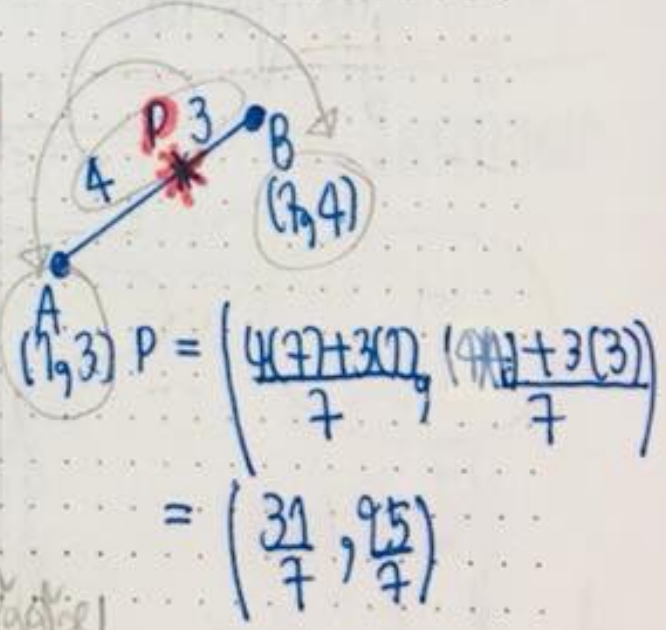 P 3
4
B
(7,4)
A
(1,3) P = (4(7)+3(1)/7, (4)(4)+3(3)/7)
= (31/7, 25/7)